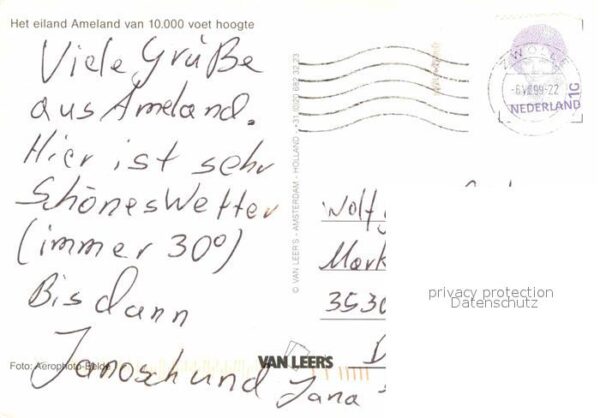 Het eiland Ameland van 10.000 voet hoogte
Viele Grüße
aus Ameland.
Hier ist sehr
Schönes Wetter
(immer 30°)
Bis dann
Janosch und Jana
Foto: Aerophoto-Eelde
© VAN LEER'S - AMSTERDAM - HOLLAND - +31 (020) 682 32 23
VAN LEER'S
ZWOLLE
99-22
NEDERLAND
Wolf
Mark
3530
D
privacy protection
Datenschutz